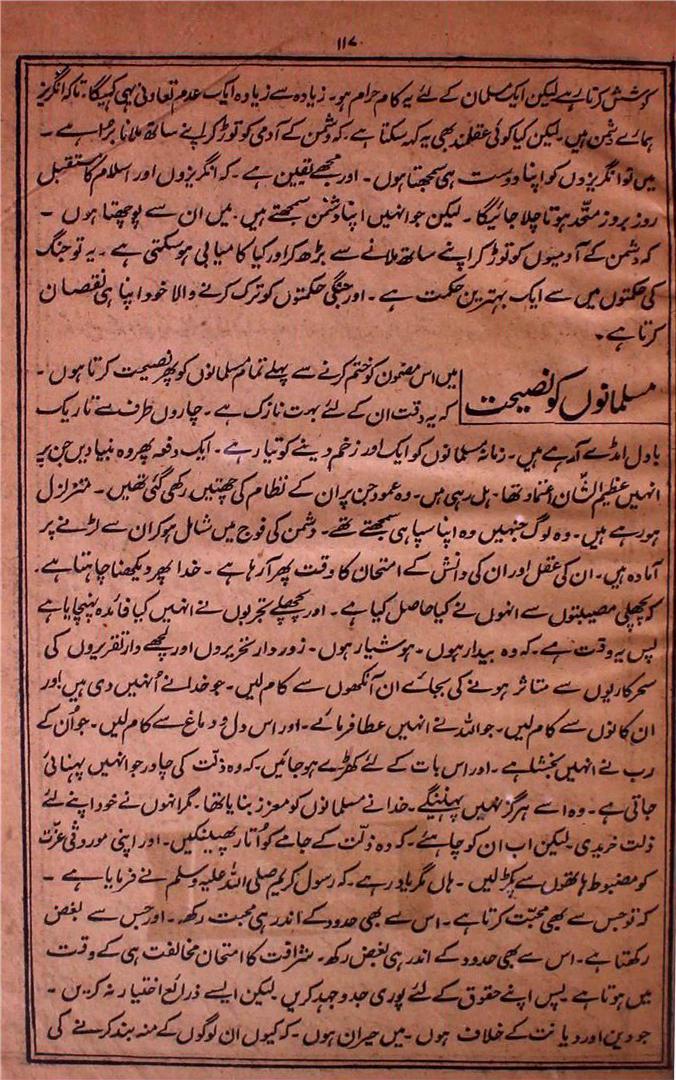 ۱۱۷
کوشش کرتا رہے لیکن ایک مسلمان کے لئے یہ کام حرام ہو۔ زیادہ سے زیادہ ایک عدم تعاونی یہی کہیگا۔ تاکہ انگریز
ہمارے دشمن ہیں۔ لیکن کیا کوئی عقلمند بھی یہ کہہ سکتا ہے۔ کہ دشمن کے آدمی کو توڑ کر اپنے ساتھ ملانا بُرا ہے۔
میں تو انگریزوں کو اپنا دوست ہی سمجھتا ہوں۔ اور مجھے یقین ہے۔ کہ انگریزوں اور اسلام کا مستقبل
روز بروز متحد ہوتا چلا جائیگا۔ لیکن جو انہیں اپنا دشمن سمجھتے ہیں۔ میں ان سے پوچھتا ہوں۔
کہ دشمن کے آدمیوں کو توڑ کر اپنے ساتھ ملانے سے بڑھ کر اور کیا کامیابی ہو سکتی ہے۔ یہ تو جنگ
کی حکمتوں میں سے ایک بہترین حکمت ہے۔ اور جنگی حکمتوں کو ترک کرنے والا خود اپنا ہی نقصان
کرتا ہے۔
مسلمانوں کو نصیحت
میں اس مضمون کو ختم کرنے سے پہلے تمام مسلمانوں کو پھر نصیحت کرتا ہوں۔
کہ یہ وقت ان کے لئے بہت نازک ہے۔ چاروں طرف سے تاریک
بادل امڈے آرہے ہیں۔ زمانہ مسلمانوں کو ایک اور زخم دینے کو تیار ہے۔ ایک دفعہ پھر وہ بنیادیں جن پر
انہیں عظیم الشّان اعتماد تھا۔ ہل رہی ہیں۔ وہ عمود جن پر ان کے نظام کی چھتیں رکھی گئی تھیں۔ متزلزل
ہو رہے ہیں۔ وہ لوگ جنہیں وہ اپنا سپاہی سمجھتے تھے۔ دشمن کی فوج میں شامل ہو کر ان سے لڑنے پر
آمادہ ہیں۔ ان کی عقل اور ان کی دانش کے امتحان کا وقت پھر آرہا ہے۔ خدا پھر دیکھنا چاہتا ہے۔
کہ پچھلی مصیبتوں سے انہوں نے کیا حاصل کیا ہے۔ اور پچھلے تجربوں نے انہیں کیا فائدہ پہنچایا ہے
پس یہ وقت ہے۔ کہ وہ بیدار ہوں۔ ہوشیار ہوں۔ زوردار تحریروں اور لچھے دار تقریروں کی
سحر کاریوں سے متاثر ہونے کی بجائے ان آنکھوں سے کام لیں۔ جو خدا نے اُنہیں دی ہیں اور
ان کانوں سے کام لیں۔ جو اللہ نے انہیں عطا فرمائے۔ اور اس دل و دماغ سے کام لیں۔ جو اُن کے
رب نے انہیں بخشا ہے۔ اور اس بات کے لئے کھڑے ہو جائیں۔ کہ وہ ذلّت کی چادر جو انہیں پہنائی
جاتی ہے۔ وہ اسے ہرگز نہیں پہنینگے۔ خدا نے مسلمانوں کو معزز بنایا تھا۔ مگر انہوں نے خود اپنے لئے
ذلت خریدی۔ لیکن اب ان کو چاہئے۔ کہ وہ ذلّت کے جامے کو اُتار پھینکیں۔ اور اپنی موروثی عزّت
کو مضبوط ہاتھوں سے پکڑ لیں۔ ہاں مگر یاد رہے۔ کہ رسول کریم صلی اللہ علیہ وسلم نے فرمایا ہے۔
کہ تو جس سے بھی محبّت کرتا ہے۔ اس سے بھی حدود کے اندر ہی محبت رکھ۔ اور جس سے بغض
رکھتا ہے۔ اس سے بھی حدود کے اندر ہی بغض رکھ۔ شرافت کا امتحان مخالفت ہی کے وقت
میں ہوتا ہے پس اپنے حقوق کے لئے پوری جدوجہد کریں لیکن ایسے ذرائع اختیار نہ کریں۔
جو دین اور دیانت کے خلاف ہوں۔ میں حیران ہوں۔ کہ کیوں ان لوگوں کے منہ بند کرنے کی